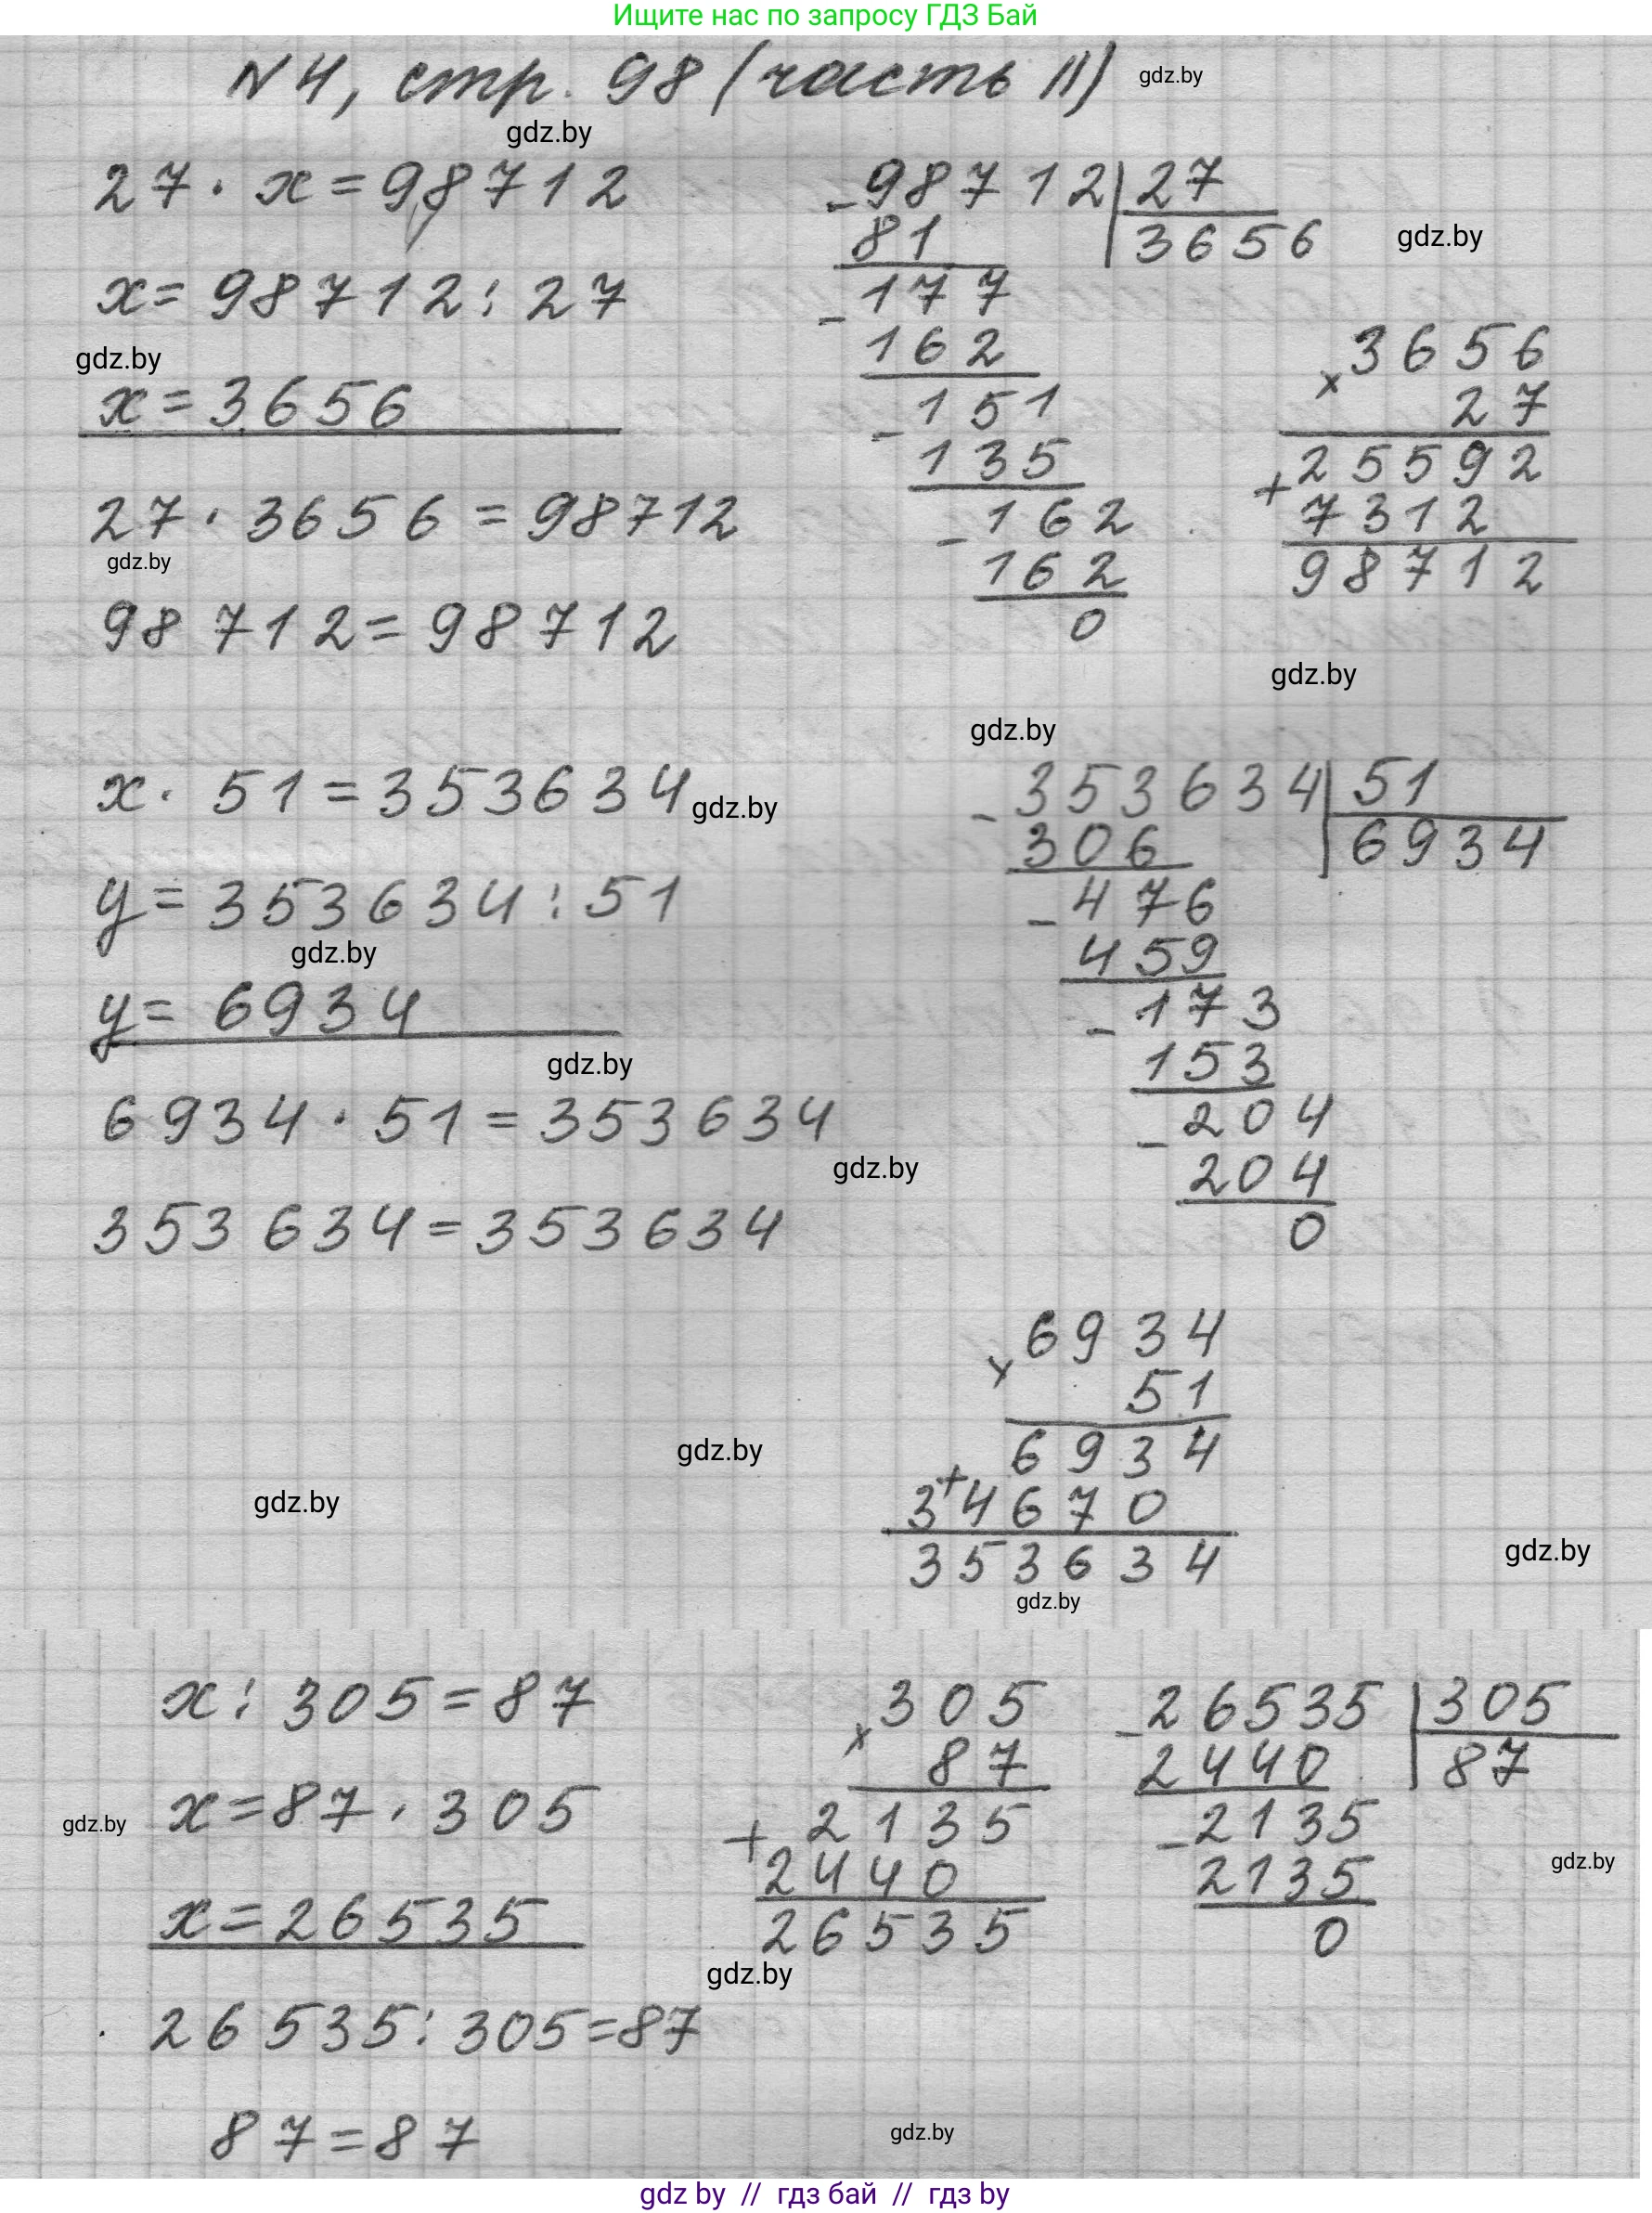 Ищите нас по запросу ГДЗ Бай
N4, стр. 98 (часть II)
gdz.by
gdz.by
27 · x = 98712
x = 98712 : 27
gdz.by
x = 3656
27 · 3656 = 98712
gdz.by
98712 = 98712
- 98712 | 27
81 3656
gdz.by
- 177
162
- 151
135
- 162
162
0
3656
x 27
+ 25592
7312
98712
gdz.by
gdz.by
x · 51 = 353634
gdz.by
y = 353634 : 51
gdz.by
y = 6934
gdz.by
6934 · 51 = 353634
gdz.by
353634 = 353634
- 353634 | 51
306 6934
- 476
459
- 173
153
- 204
204
0
6934
x 51
6934
+ 34670
353634
gdz.by
gdz.by
gdz.by
gdz.by
x : 305 = 87
x = 87 · 305
gdz.by
x = 26535
26535 : 305 = 87
87 = 87
305
x 87
+ 2135
2440
26535
gdz.by
- 26535 | 305
2440 87
- 2135
2135
0
gdz.by
gdz.by
gdz by // гдз бай // гдз by